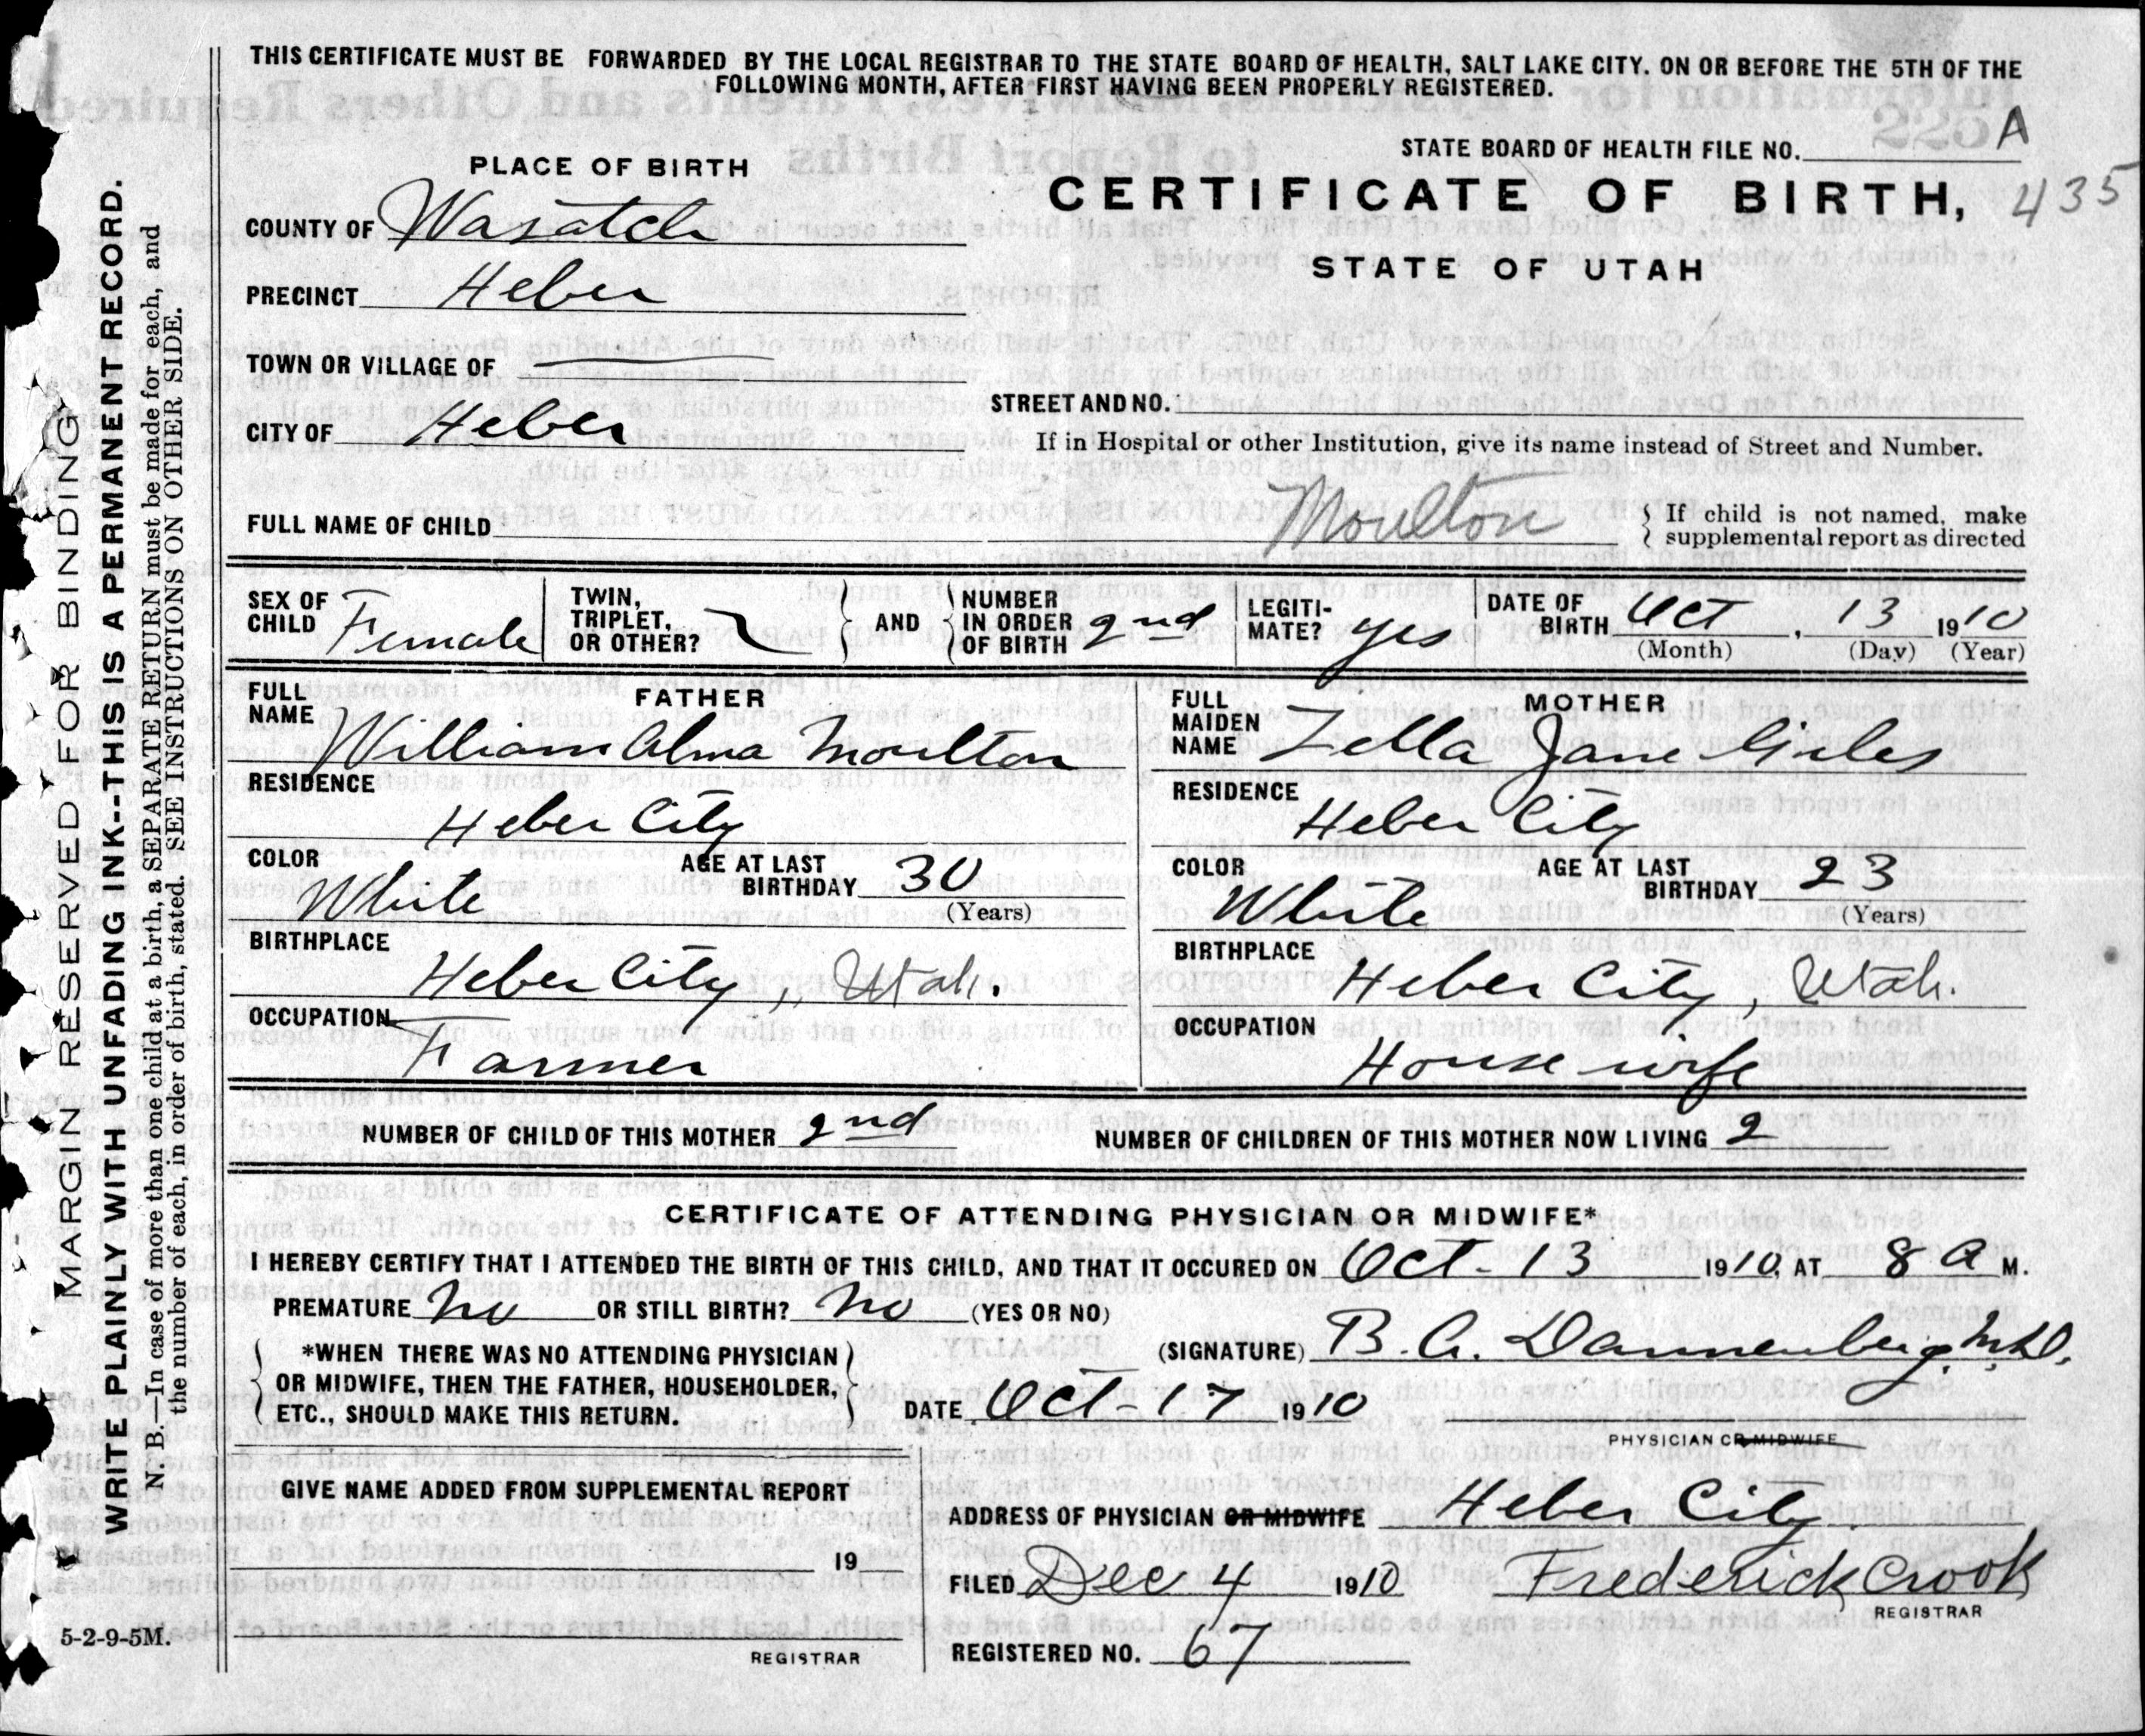 THIS CERTIFICATE MUST BE FORWARDED BY THE LOCAL REGISTRAR TO THE STATE BOARD OF HEALTH, SALT LAKE CITY. ON OR BEFORE THE 5TH OF THE
FOLLOWING MONTH, AFTER FIRST HAVING BEEN PROPERLY REGISTERED.
STATE BOARD OF HEALTH FILE NO. A
435
PLACE OF BIRTH
CERTIFICATE OF BIRTH,
STATE OF UTAH
COUNTY OF Wasatch
PRECINCT Heber
TOWN OR VILLAGE OF
CITY OF Heber
STREET AND NO.
If in Hospital or other Institution, give its name instead of Street and Number.
FULL NAME OF CHILD Moulton
If child is not named, make
supplemental report as directed
SEX OF CHILD Female
TWIN, TRIPLET, OR OTHER?
AND
NUMBER IN ORDER OF BIRTH 2nd
LEGITI-MATE? yes
DATE OF BIRTH Oct. 13 1910
(Month) (Day) (Year)
FATHER
FULL NAME William Alma Moulton
RESIDENCE
Heber City
COLOR White
AGE AT LAST BIRTHDAY 30
(Years)
BIRTHPLACE
Heber City, Utah.
OCCUPATION
Farmer
MOTHER
FULL MAIDEN NAME Zella Jane Giles
RESIDENCE
Heber City
COLOR White
AGE AT LAST BIRTHDAY 23
(Years)
BIRTHPLACE
Heber City, Utah.
OCCUPATION
House wife
NUMBER OF CHILD OF THIS MOTHER 2nd
NUMBER OF CHILDREN OF THIS MOTHER NOW LIVING 2
CERTIFICATE OF ATTENDING PHYSICIAN OR MIDWIFE*
I HEREBY CERTIFY THAT I ATTENDED THE BIRTH OF THIS CHILD, AND THAT IT OCCURED ON Oct-13 1910, AT 8 A M.
PREMATURE No OR STILL BIRTH? No (YES OR NO)
*WHEN THERE WAS NO ATTENDING PHYSICIAN
OR MIDWIFE, THEN THE FATHER, HOUSEHOLDER,
ETC., SHOULD MAKE THIS RETURN.
(SIGNATURE) B. A. Dannenberg M.D.
DATE Oct-17 1910
PHYSICIAN OR MIDWIFE
GIVE NAME ADDED FROM SUPPLEMENTAL REPORT
19
REGISTRAR
ADDRESS OF PHYSICIAN OR MIDWIFE Heber City.
FILED Dec 4 1910 Frederick Crook
REGISTRAR
REGISTERED NO. 67
5-2-9-5M.
MARGIN RESERVED FOR BINDING
WRITE PLAINLY WITH UNFADING INK--THIS IS A PERMANENT RECORD.
N. B.—In case of more than one child at a birth, a SEPARATE RETURN must be made for each, and
the number of each, in order of birth, stated. SEE INSTRUCTIONS ON OTHER SIDE.